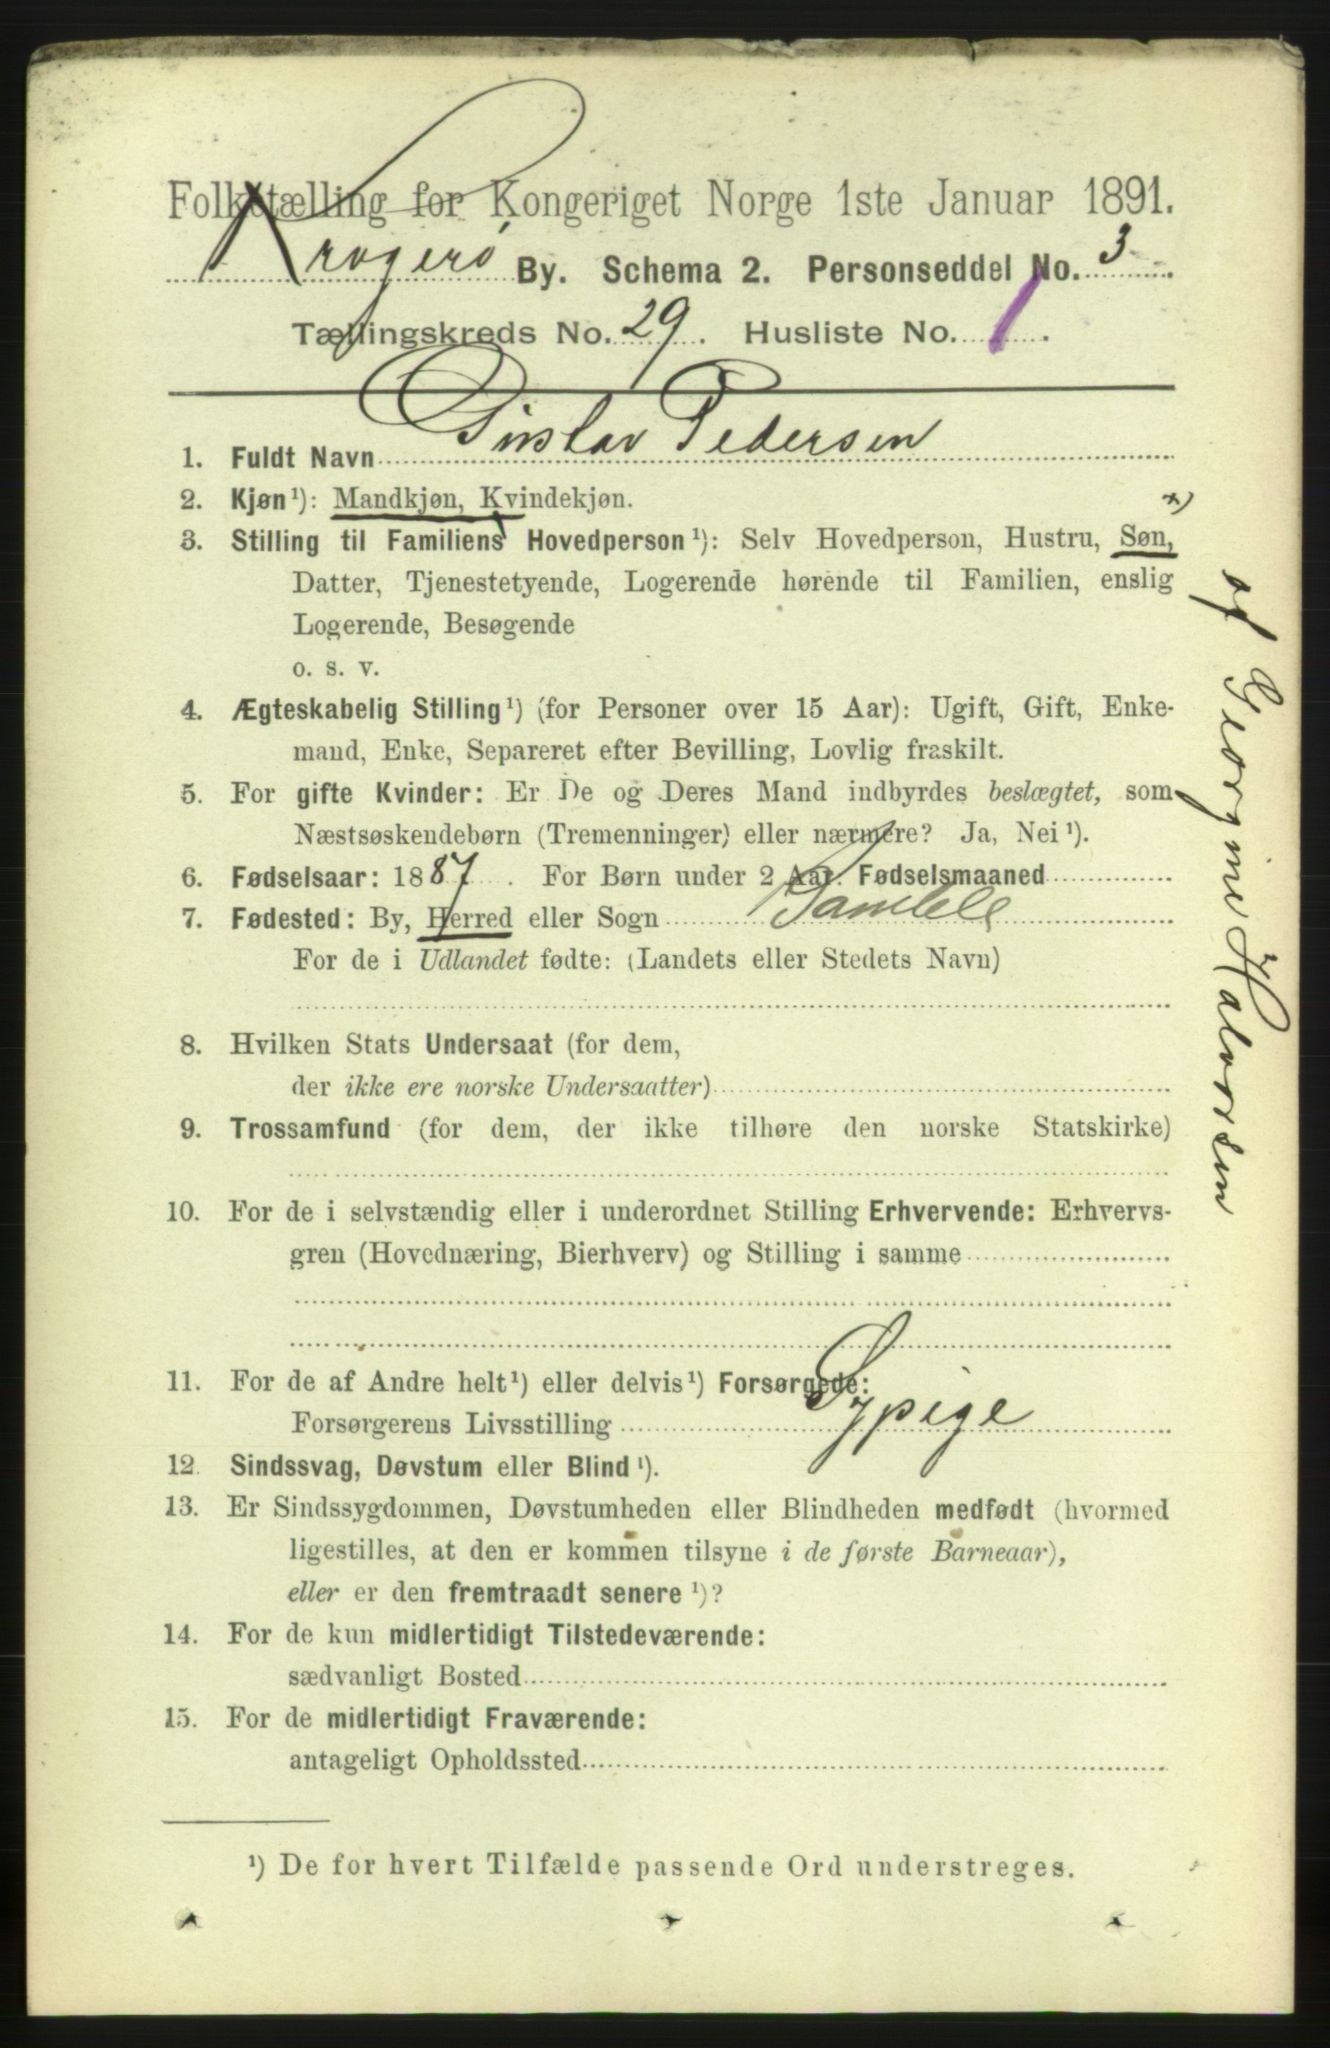 Folketælling for Kongeriget Norge 1ste Januar 1891.
Kragerø By. Schema 2. Personseddel No. 3
Tællingskreds No. 29. Husliste No. 1.
1. Fuldt Navn Gustav Pedersen
2. Kjøn¹): Mandkjøn, Kvindekjøn.
3. Stilling til Familiens Hovedperson¹): Selv Hovedperson, Hustru, Søn, x)
Datter, Tjenestetyende, Logerende hørende til Familien, enslig
Logerende, Besøgende
o. s. v.
4. Ægteskabelig Stilling¹) (for Personer over 15 Aar): Ugift, Gift, Enke-
mand, Enke, Separeret efter Bevilling, Lovlig fraskilt.
5. For gifte Kvinder: Er De og Deres Mand indbyrdes beslægtet, som
Næstsøskendebørn (Tremenninger) eller nærmere? Ja, Nei¹).
6. Fødselsaar: 1887. For Børn under 2 Aar. Fødselsmaaned
7. Fødested: By, Herred eller Sogn Bamble
For de i Udlandet fødte: (Landets eller Stedets Navn)
8. Hvilken Stats Undersaat (for dem,
der ikke ere norske Undersaatter)
9. Trossamfund (for dem, der ikke tilhøre den norske Statskirke)
10. For de i selvstændig eller i underordnet Stilling Erhvervende: Erhvervs-
gren (Hovednæring, Bierhverv) og Stilling i samme
11. For de af Andre helt¹) eller delvis¹) Forsørgede:
Forsørgerens Livsstilling Sypige
12. Sindssvag, Døvstum eller Blind¹).
13. Er Sindssygdommen, Døvstumheden eller Blindheden medfødt (hvormed
ligestilles, at den er kommen tilsyne i de første Barneaar),
eller er den fremtraadt senere¹)?
14. For de kun midlertidigt Tilstedeværende:
sædvanligt Bosted
15. For de midlertidigt Fraværende:
antageligt Opholdssted
¹) De for hvert Tilfælde passende Ord understreges.
af Georgine Halvorsen